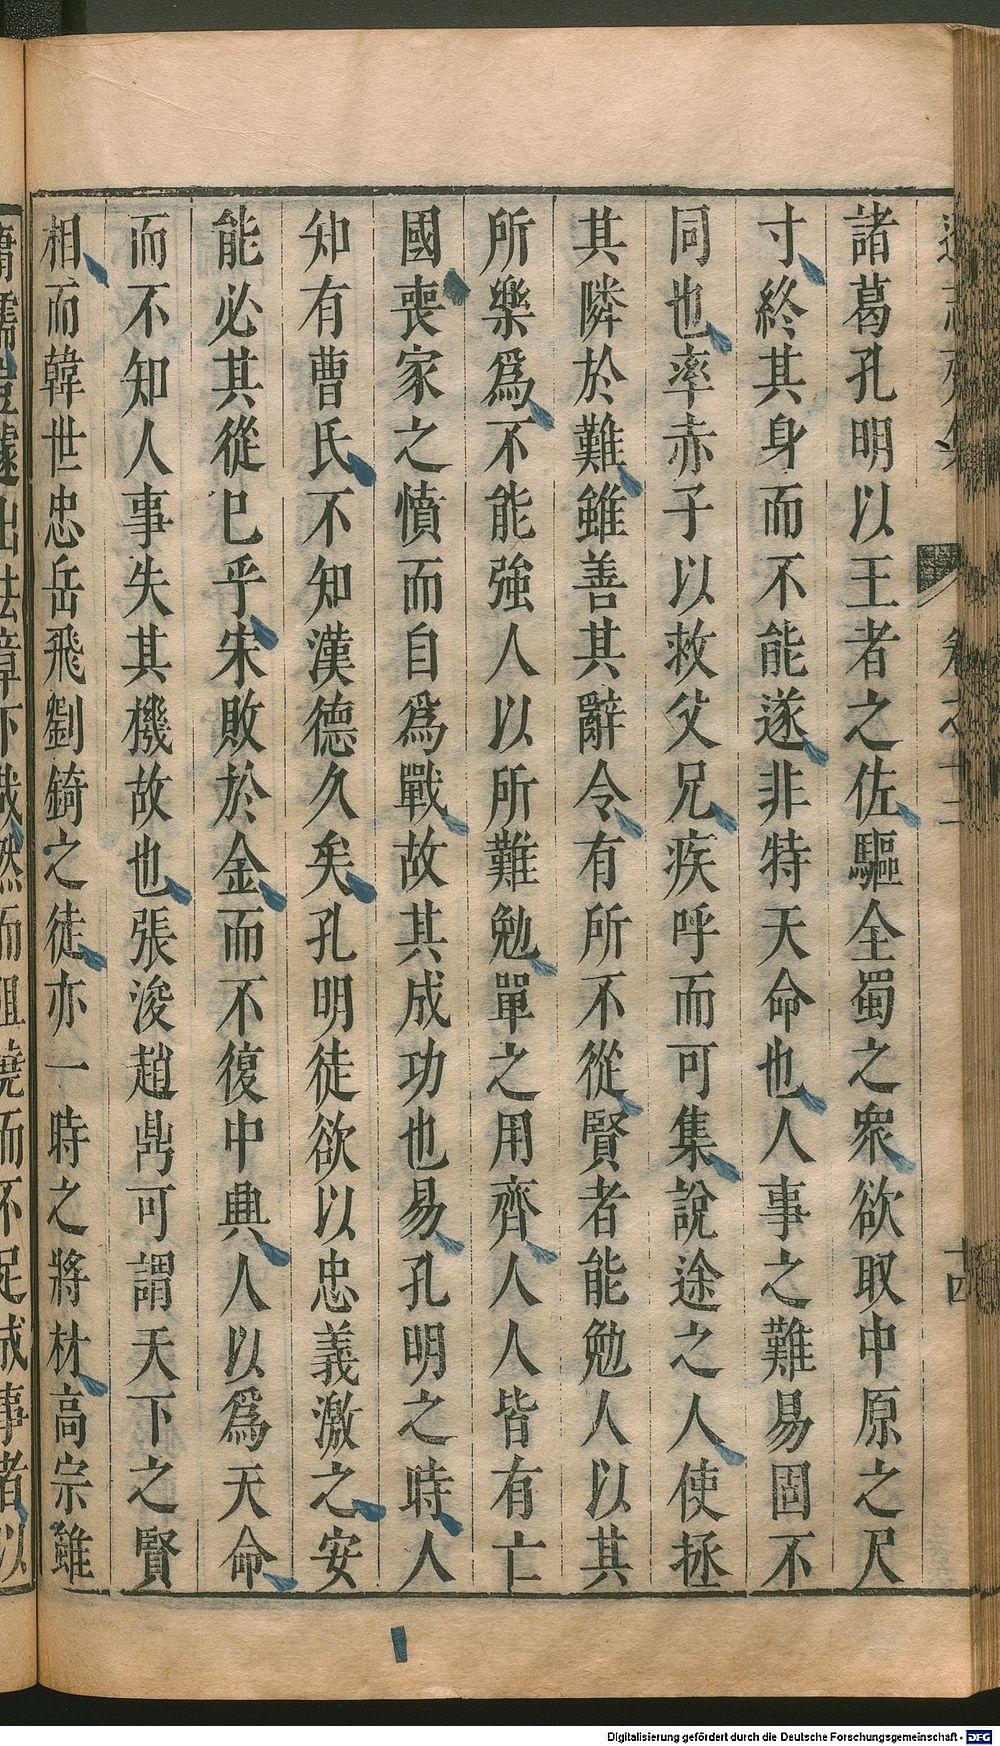 諸葛孔明以王者之佐驅全蜀之衆欲取中原之尺
寸終其身而不能遂非特天命也人事之難易固不
同也率赤子以救父兄疾呼而可集說途之人使拯
其隣於難雖善其辭令有所不從賢者能勉人以其
所樂爲不能強人以所難勉單之用齊人人皆有亡
國喪家之憤而自爲戰故其成功也易孔明之時人
知有曹氏不知漢德久矣孔明徒欲以忠義激之安
能必其從巳乎宋敗於金而不復中興人以爲天命
而不知人事失其機故也張浚趙鼎可謂天下之賢
相而韓世忠岳飛劉錡之徒亦一時之將材高宗雖
Digitalisierung gefördert durch die Deutsche Forschungsgemeinschaft - DFG